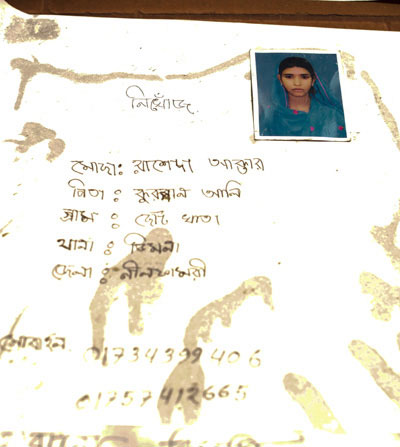 নিখোঁজ
মোছা: রাশেদা আক্তার
পিতা : কুরবান আলি
গ্রাম : ছোট খাতা
থানা : ডিমলা
জেলা : নীলফামারী
মোবাইল. 01734399406
01757412665